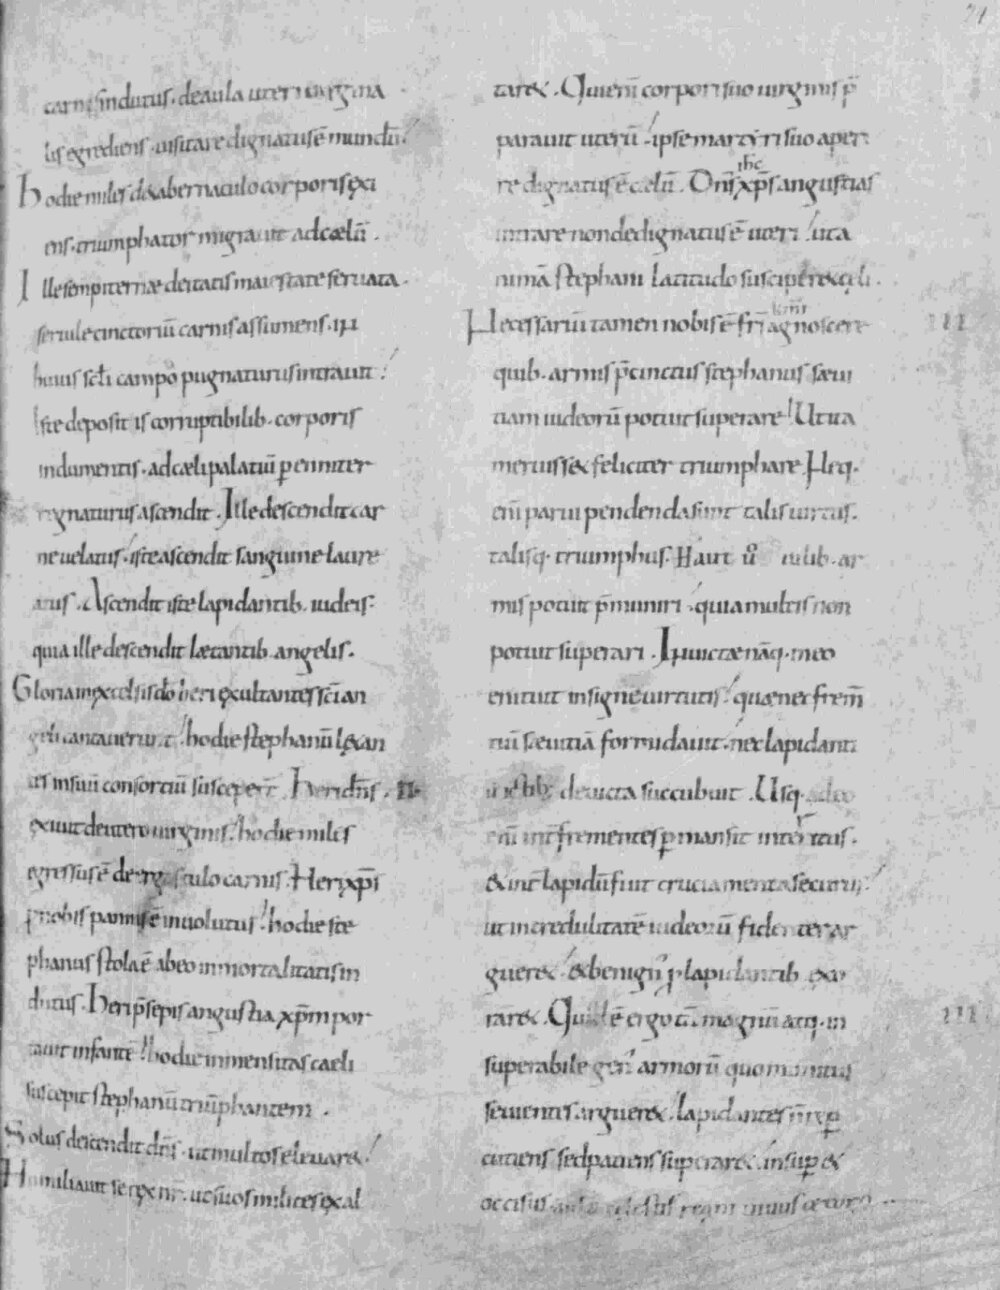 carnis indutus. de aula uteri uirgina
lis egrediens. uisitare dignatus ē mundū.
Hodie miles de tabernaculo corporis exi
ens. triumphator migrauit ad cælū.
Ille sempiternæ deitatis maiestate seruata.
seruile cinctoriū carnis assumens. in
huius scłi campo pugnaturus intrauit.
Iste depositis corruptibilib. corporis
indumentis. ad cæli palatiū p̱enniter
regnaturus ascendit. Ille descendit car
ne uelatus. iste ascendit sanguine laure
atus. Ascendit iste lapidantib. iudeis.
quia ille descendit lætantib. angelis.
Gloria in excelsis dō heri exultantes sc̄i an
geli cantauerunt. hodie stephanū læ̨tan
tes in suū consortiū susceper̄. Heri dn̄s .II.
exiuit de utero uirginis. hodie miles
egressus ē de ergastulo carnis. Heri xp̄s
p nobis pannis ē inuolutus. hodie ste
phanus stola ē ab eo inmortalitatis in
dutus. Heri p̄sepis angustia xp̄m por
tauit infantē. hodie inmensitas caeli
suscepit stephanū triūphantem.
Solus descendit dn̄s. ut multos eleuar&.
Humiliauit se rex nr̄. ut suos milites exal
tar&. Qui eni corpori suo uirginis p̄
parauit uterū. ipse martyri suo aperi
re dignatus ē cælū. Dn̄s ihc xp̄s angustias
intrare non dedignatus ē uteri. ut a
nimā stephani latitudo susciper& cæli.
Necessariū tamen nobis ē fr̄s kmi agnoscere III
quib. armis p̄cinctus stephanus sæui
tiam iudeorū potuit superare. Ut ita
meruiss& feliciter triumphare. Neq.
enī parui pendenda sunt talis uirtus.
talisq. triumphus. Haut u̇ uilib. ar
mis potuit p̄muniri. quia multis non
potuit superari. Inuictæ nāq. in eo
enituit insigne uirtutis. quæ nec frem̄
tiū sæuitiā formidauit. nec lapidanti
deuicta succubuit. Usq. adeo
enī int̄ frementes p̱mansit interritus.
& int̄ lapidū fuit cruciamenta securus.
ut incredulitatē iudeorū fidenter ar
guer&. & benign' p lapidantib. exo
rar&. Quid ē ergo tā magnū atq. in III.
superabile gen' armorū quo munitus
seuientes arguer&. lapidantes n̄ rep̱
cutiens sed patiens superar&. insup̱ &
occisus